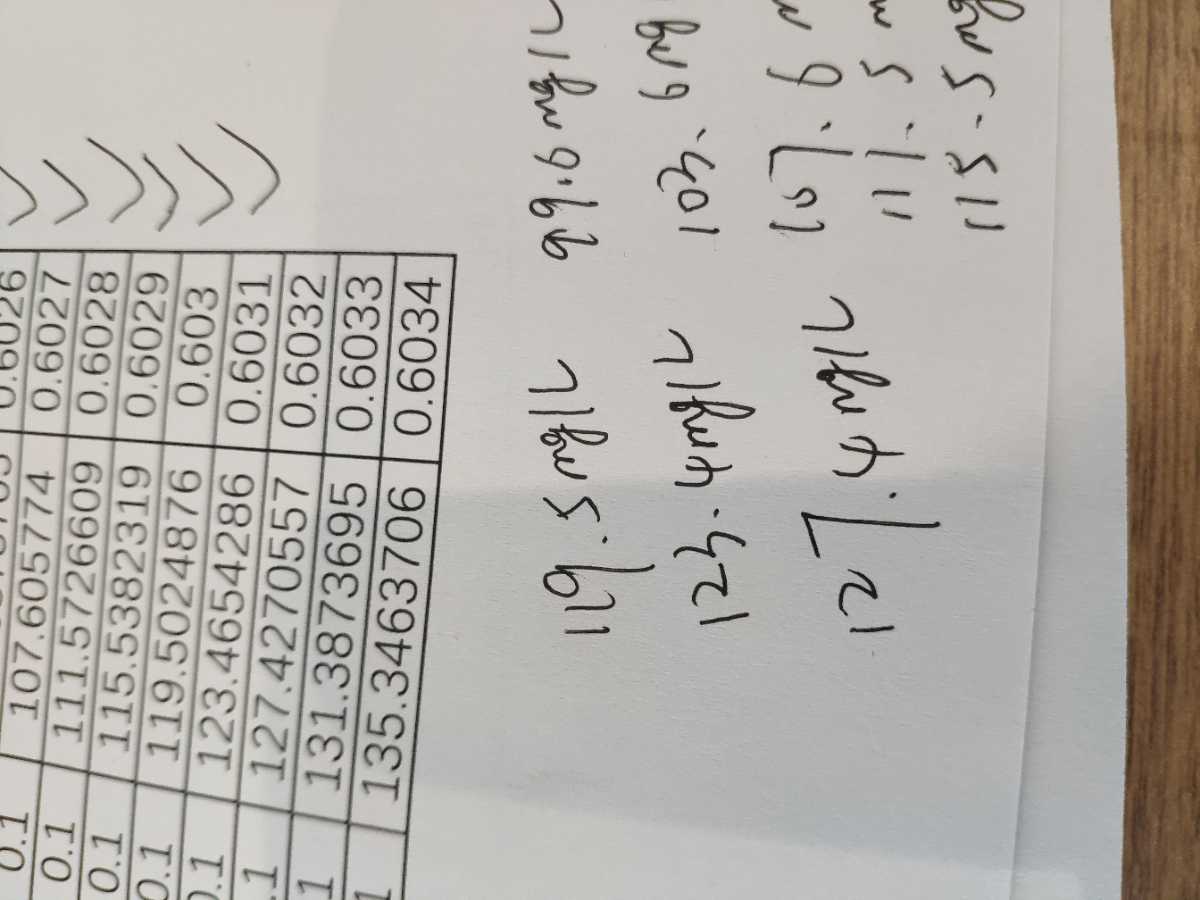 0.6026
0.1 107.605774 0.6027
0.1 111.5726609 0.6028
0.1 115.5382319 0.6029
0.1 119.5024876 0.603
0.1 123.4654286 0.6031
.1 127.4270557 0.6032
1 131.3873695 0.6033
1 135.3463706 0.6034
119.5 mg/L 99.6 mg/L
123.4 mg/L 103.6 mg
127.4 mg/L 107.6 m
111.5 m
115.5 mg